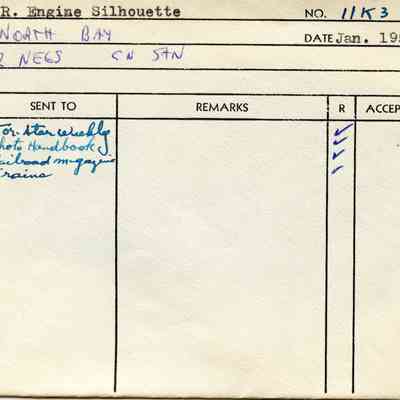 R. Engine Silhouette NO. 11K3
NORTH BAY DATE Jan. 195
2 NEGS CN STN
SENT TO REMARKS R ACCEP
Tor. Star weekly
hoto Handbook
ailroad magazine
rains